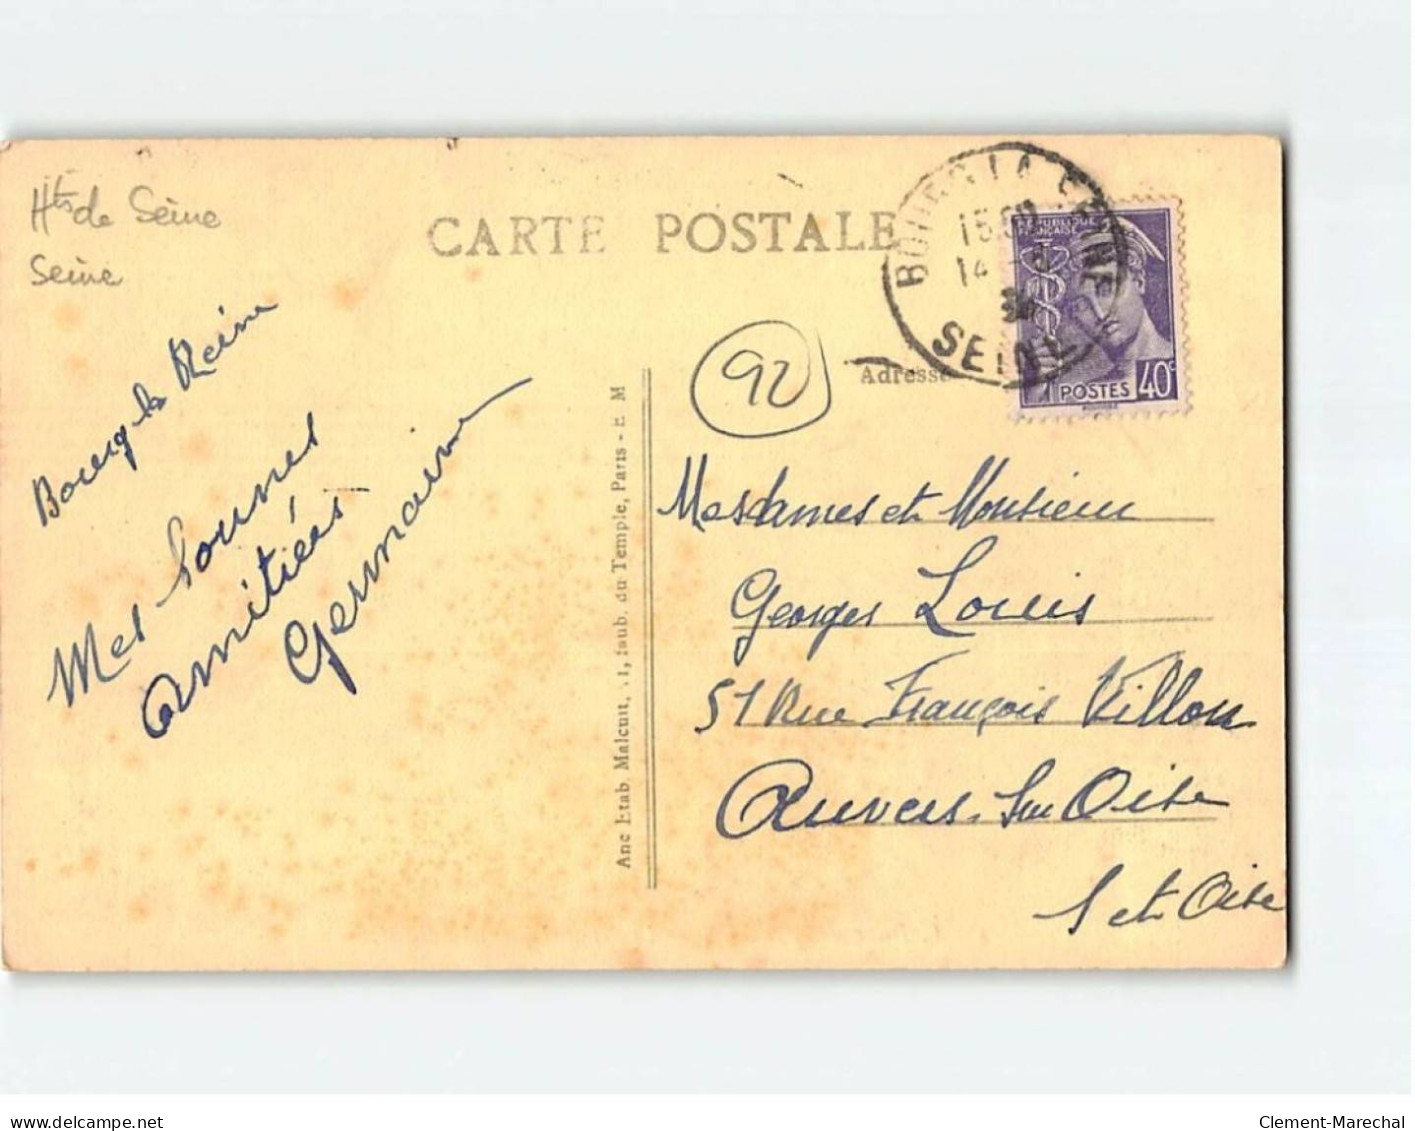 Hts de Seine
Seine
CARTE POSTALE
BOURG LA REINE
15
14
SEINE
REPUBLIQUE
FRANÇAISE
POSTES 40c
92
Adresse
Bourg la Reine
Mes bonnes
amitiés
Germaine
Anc Etab. Malcuit, 41, faub. du Temple, Paris - E M
Mesdames et Monsieur
Georges Louis
51 Rue François Villon
Auvers. Sur Oise
S et Oise
delcampe.net
Clement-Marechal